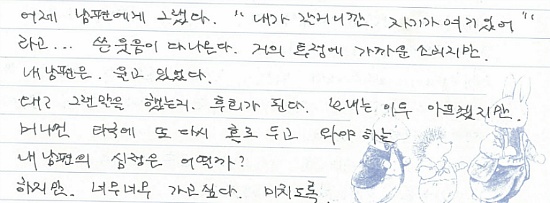 어제 남편에게 그랬다. "내가 간거니깐. 자기가 여기있어"
라고... 쓴 웃음이 다 나온다. 거의 투정에 가까운 소리지만.
내 남편은. 울고 있었다.
왜? 그런말을 했는지. 후회가 된다. 보내는 이두 아프겠지만.
머나먼 타국에 또 다시 혼로 두고 와야 하는
내 남편의 심정은 어떨까?
하지만. 너무너무 가고싶다. 미치도록.